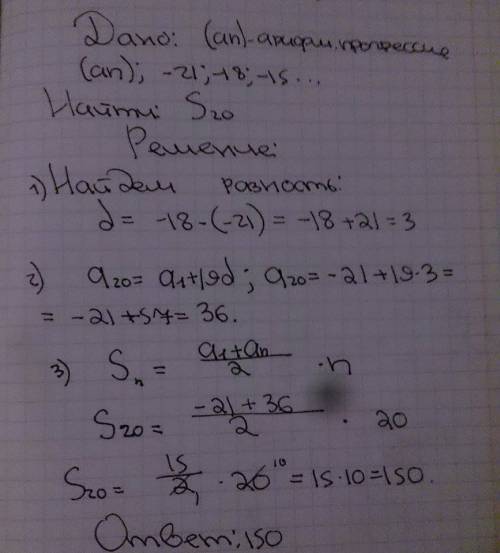 Дано: (an)-арифм. прогрессия
(an); -21; -18; -15...
Найти: S₂₀
Решение:
1) Найдем разность:
d = -18-(-21) = -18+21=3
2) a₂₀= a₁+19d; a₂₀= -21+19·3=
= -21+57= 36.
3) Sₙ = (a₁+aₙ)/2 ·n
S₂₀= (-21+36)/2 · 20
S₂₀= 15/2₁ · 20¹⁰ = 15·10=150.
Ответ: 150